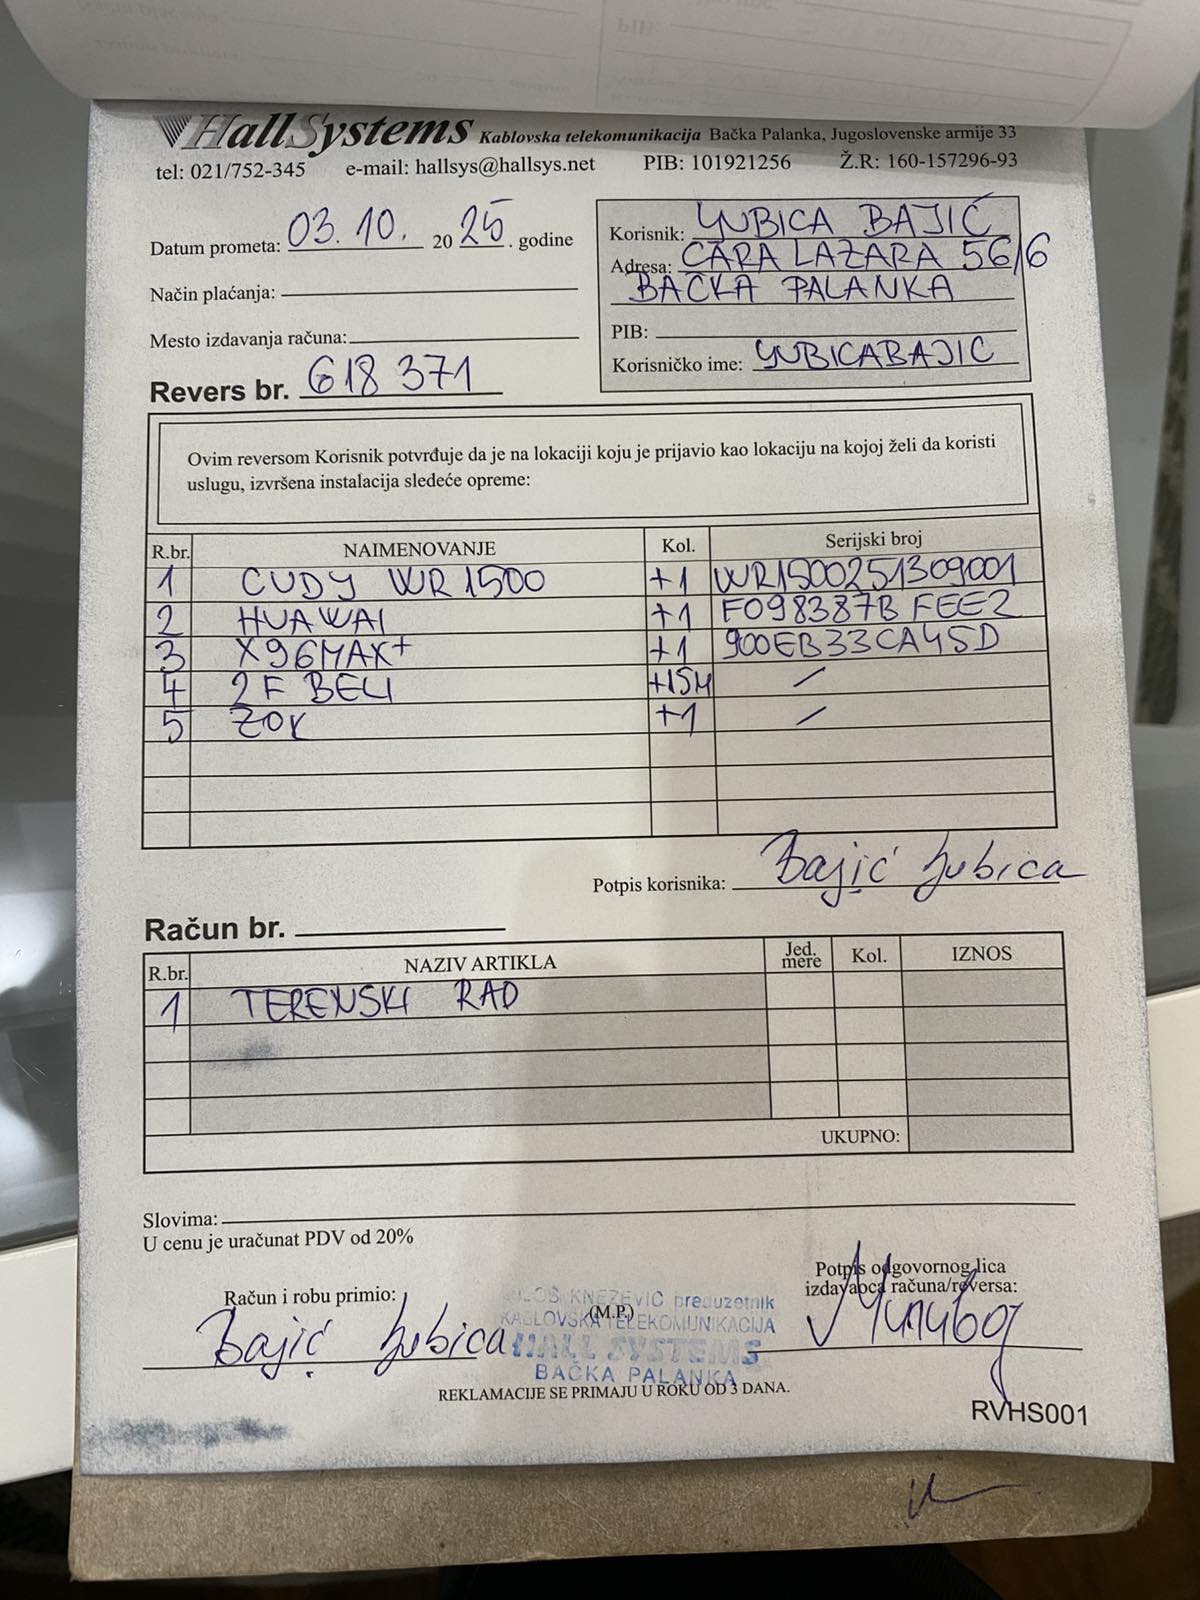 HallSystems Kablovska telekomunikacija Bačka Palanka, Jugoslovenske armije 33
tel: 021/752-345 e-mail: hallsys@hallsys.net PIB: 101921256 Ž.R: 160-157296-93
Datum prometa: 03.10. 2025. godine
Način plaćanja:
Mesto izdavanja računa:
Revers br. 618 371
Korisnik: LJUBICA BAJIĆ
Adresa: CARA LAZARA 56/6
BAČKA PALANKA
PIB:
Korisničko ime: LJUBICABAJIC
Ovim reversom Korisnik potvrđuje da je na lokaciji koju je prijavio kao lokaciju na kojoj želi da koristi
uslugu, izvršena instalacija sledeće opreme:
R.br. NAIMENOVANJE Kol. Serijski broj
1 CUDY WR1500 +1 WR1500251309001
2 HUAWAI +1 F098387BFEE2
3 X96MAX+ +1 900EB33CA45D
4 2F BELI +15M /
5 ZOK +1 /
Potpis korisnika: Bajić Ljubica
Račun br.
R.br. NAZIV ARTIKLA Jed. mere Kol. IZNOS
1 TERENSKI RAD
UKUPNO:
Slovima:
U cenu je uračunat PDV od 20%
Račun i robu primio:
Bajić Ljubica
KNEZEVIĆ preduzetnik
(M.P.)
KABLOVSKA TELEKOMUNIKACIJA
HALL SYSTEMS
BAČKA PALANKA
Potpis odgovornog lica
izdavaoca računa/reversa:
REKLAMACIJE SE PRIMAJU U ROKU OD 3 DANA.
RVHS001